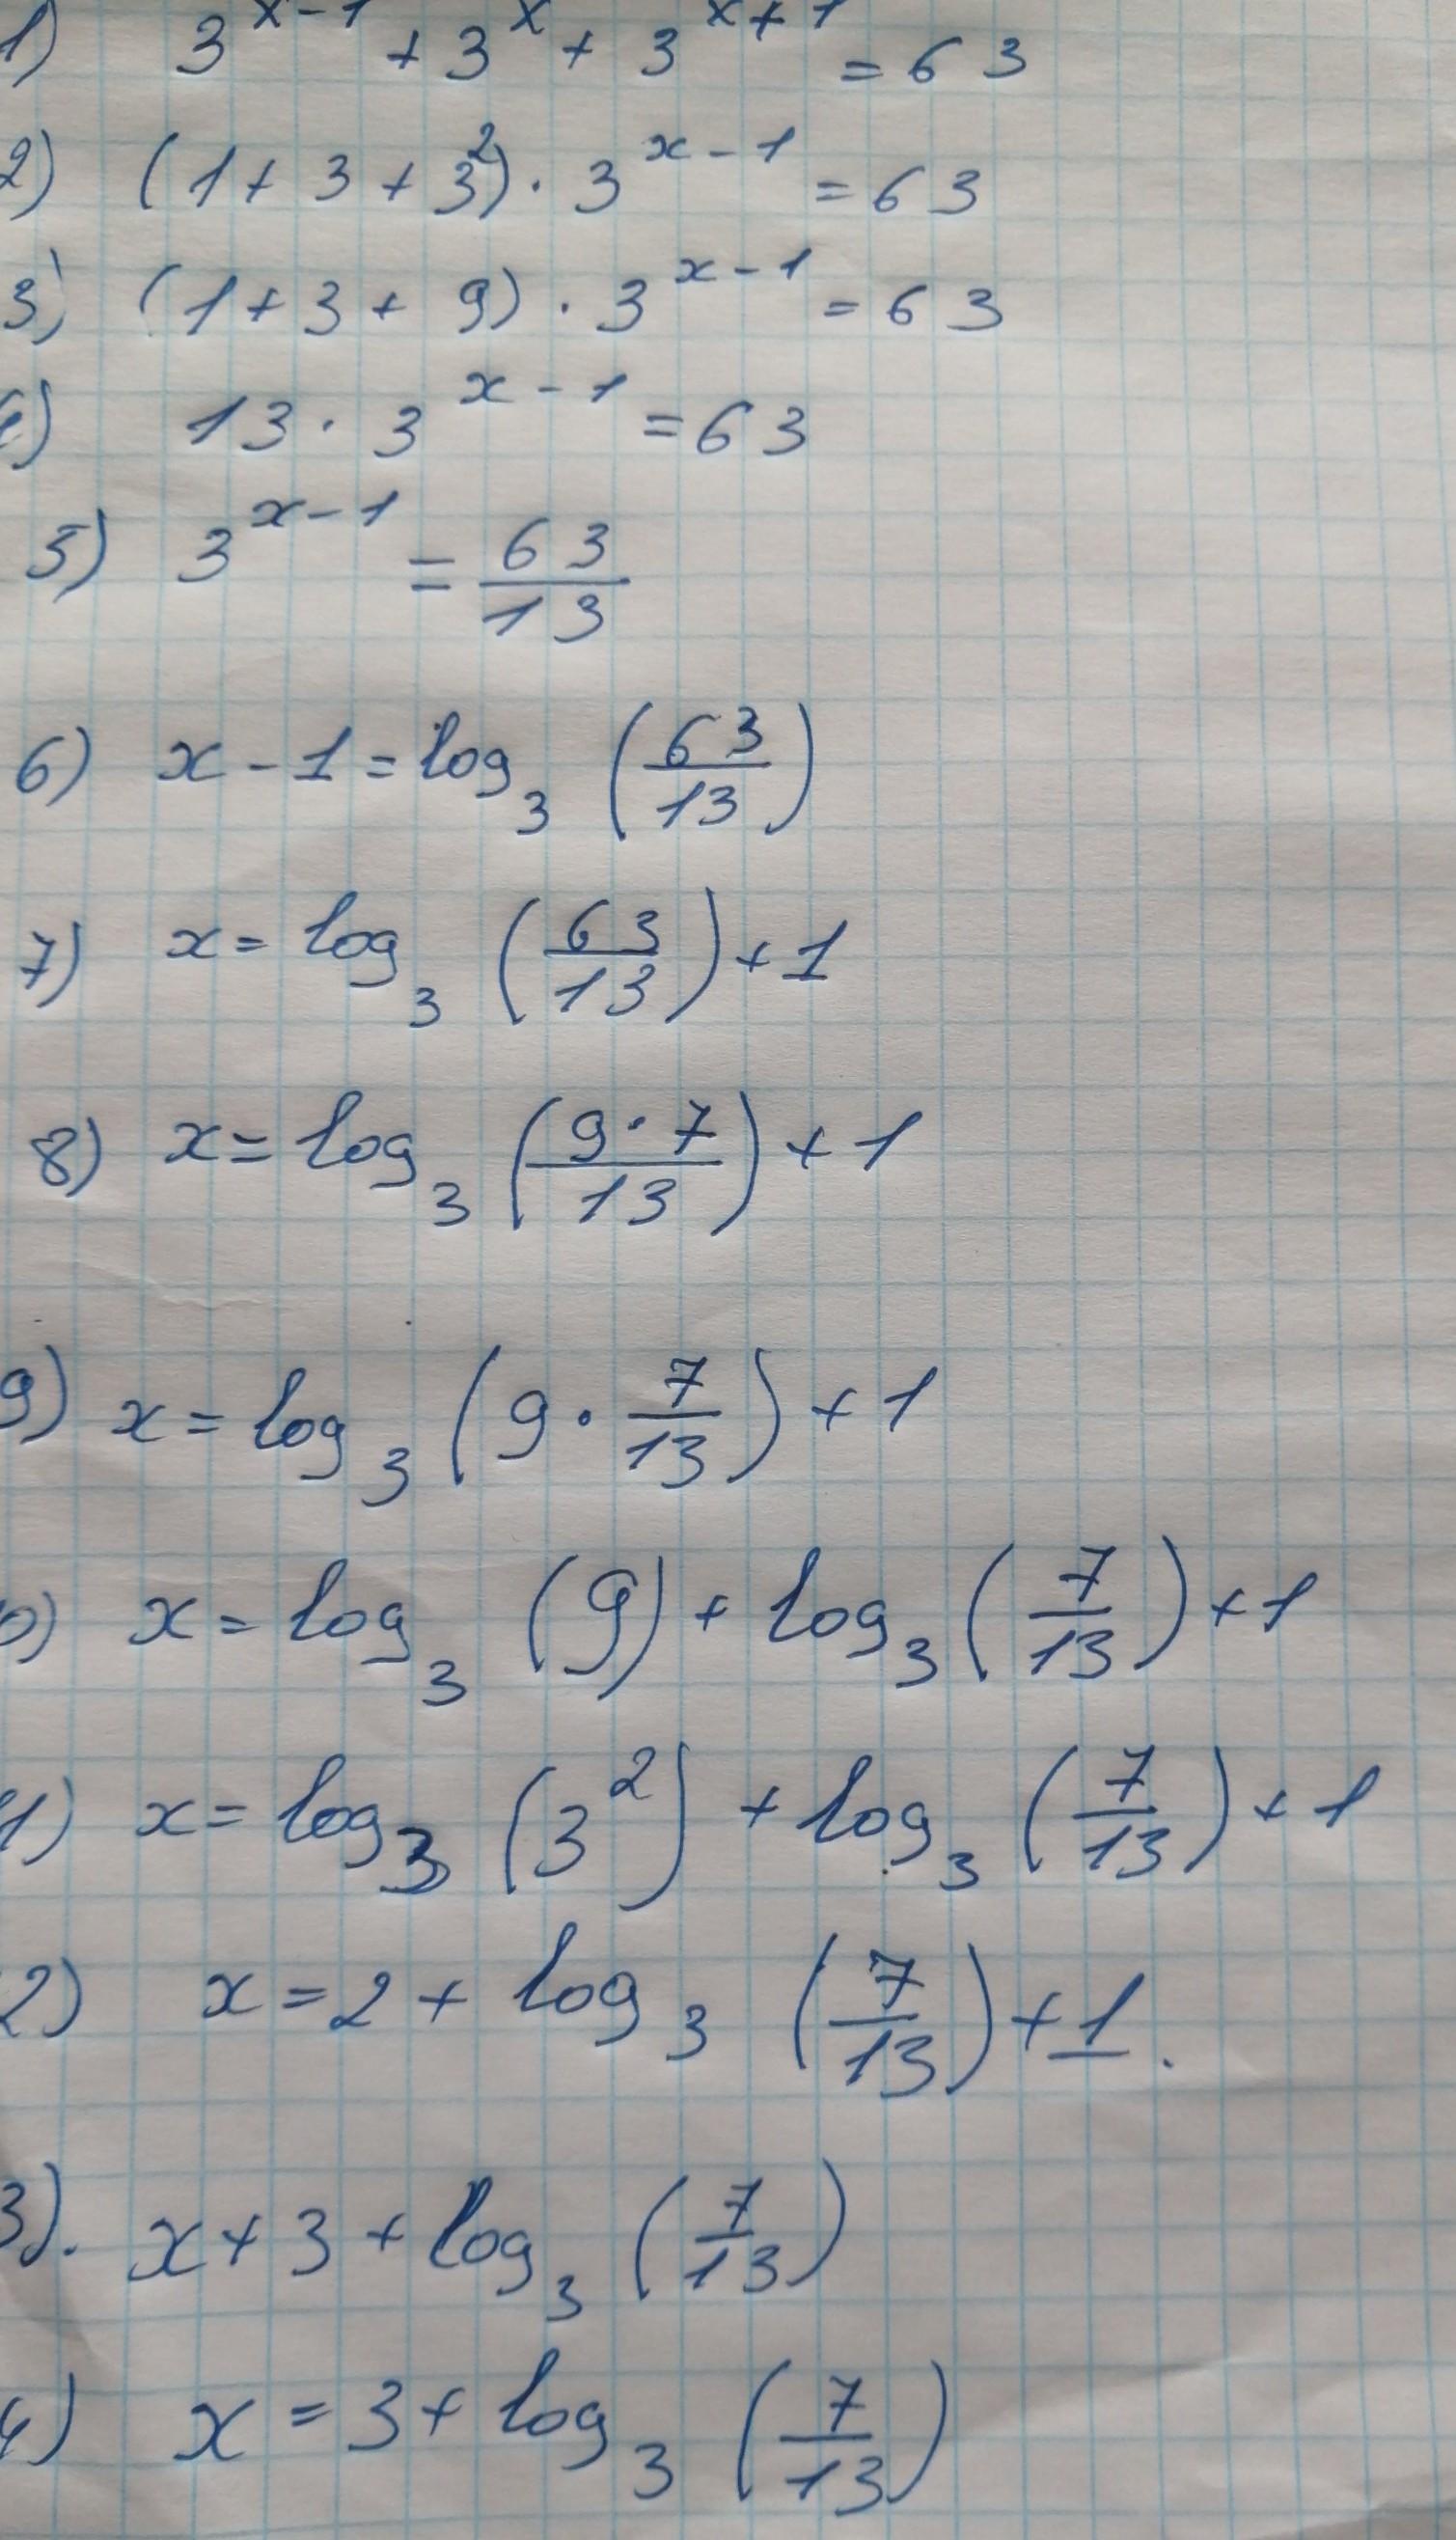 1) 3^{x-1} + 3^x + 3^{x+1} = 63
2) (1 + 3 + 3^2) · 3^{x-1} = 63
3) (1 + 3 + 9) · 3^{x-1} = 63
4) 13 · 3^{x-1} = 63
5) 3^{x-1} = \frac{63}{13}
6) x - 1 = log_3 (\frac{63}{13})
7) x = log_3 (\frac{63}{13}) + 1
8) x = log_3 (\frac{9 · 7}{13}) + 1
9) x = log_3 (9 · \frac{7}{13}) + 1
0) x = log_3 (9) + log_3 (\frac{7}{13}) + 1
1) x = log_3 (3^2) + log_3 (\frac{7}{13}) + 1
2) x = 2 + log_3 (\frac{7}{13}) + 1.
3). x + 3 + log_3 (\frac{7}{13})
4) x = 3 + log_3 (\frac{7}{13})